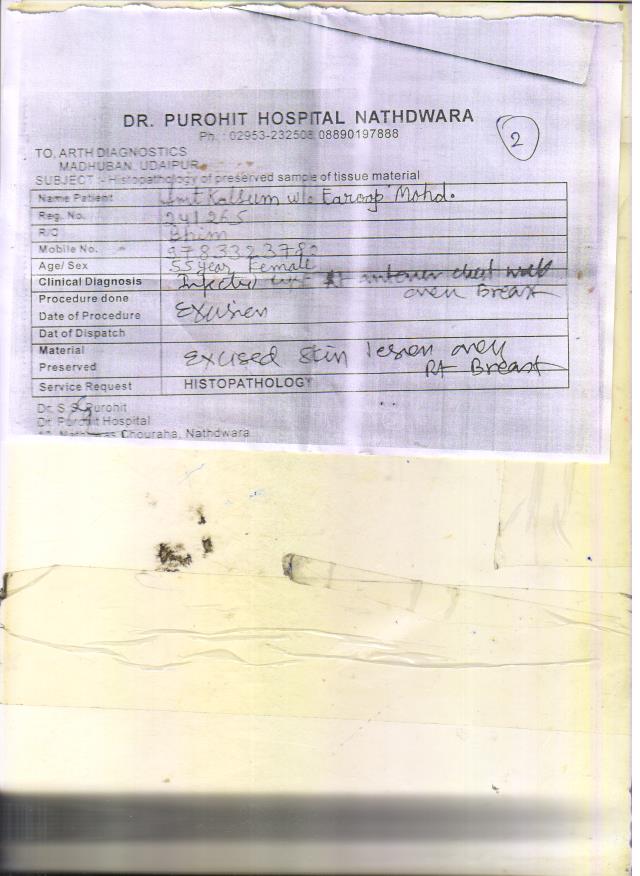 DR. PUROHIT HOSPITAL NATHDWARA
Ph. : 02953-232508 08890197888
2
TO, ARTH DIAGNOSTICS
MADHUBAN, UDAIPUR
SUBJECT :- Histopathology of preserved sample of tissue material
Name Patient w/o Mohd.
Reg. No. 241265
R/O Bhim
Mobile No.
Age/ Sex 55 year Female
Clinical Diagnosis Infected anterior chest wall
over Breast
Procedure done
Date of Procedure Excision
Dat of Dispatch
Material
Preserved Excised Skin lesion over
Rt Breast
Service Request HISTOPATHOLOGY
Dr. S. S. Purohit
Dr. Purohit Hospital
Chouraha, Nathdwara